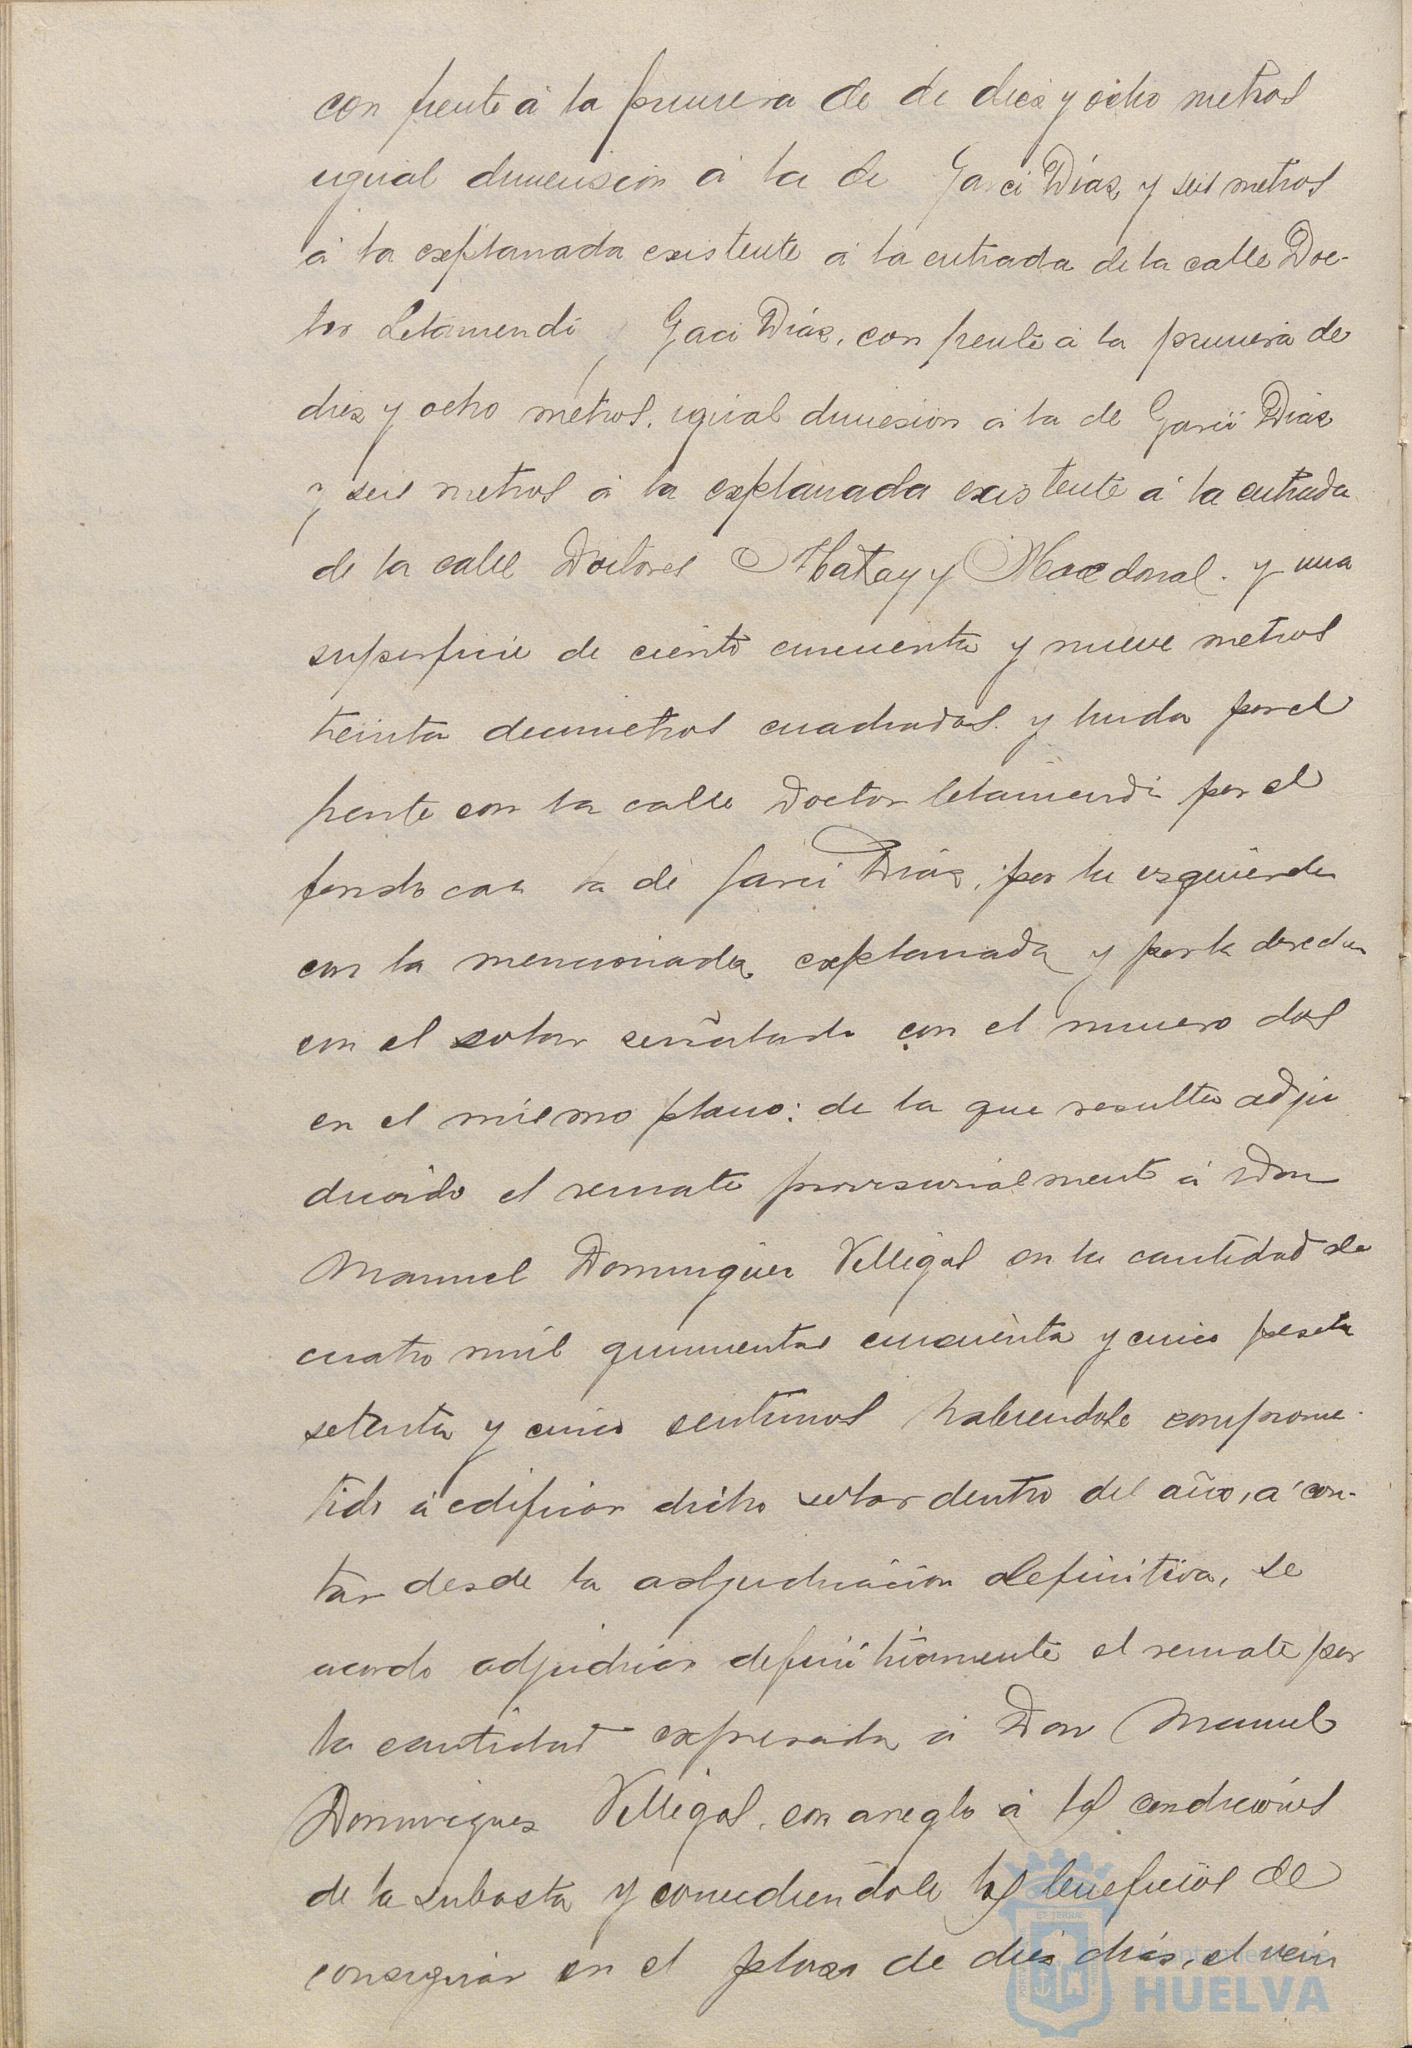 con frente á la primera de de diez y ocho metros
igual dimension á la de Garci Díaz y seis metros
á la explanada existente á la entrada de la calle Doc-
tor Letamendi y Garci Díaz, con frente á la primera de
diez y ocho metros, igual dimesion á la de Garci Diaz
y seis metros á la explanada existente á la entrada
de la calle Doctores Mata y y Macdonal. y una
superficie de ciento cincuenta y nueve metros
treinta decimetros cuadrados y linda por el
frente con la calle Doctor Letamendi por el
fondo con la de Garci Diaz, por la izquierda
con la mencionada explanada y por la derecha
con el solar señalado con el numero dos
en el mismo plano: de la que resulta adju
dicado el remate provisionalmente á Don
Manuel Dominguez Villegas en la cantidad de
cuatro mil quinientas cincuenta y cinco peseta
setenta y cinco sentimos habiendose comprome-
tido á edificar dicho solar dentro del año, á con-
tar desde la adjudicacion definitiva, se
acordo adjudicar definitivamente el remate por
la cantidad expresada á Don Manuel
Dominguez Villegas, con areglo á las condiciones
de la subasta y concediendole los beneficios de
consignar en el plazo de diez dias, el vein
Ayuntamiento de
HUELVA